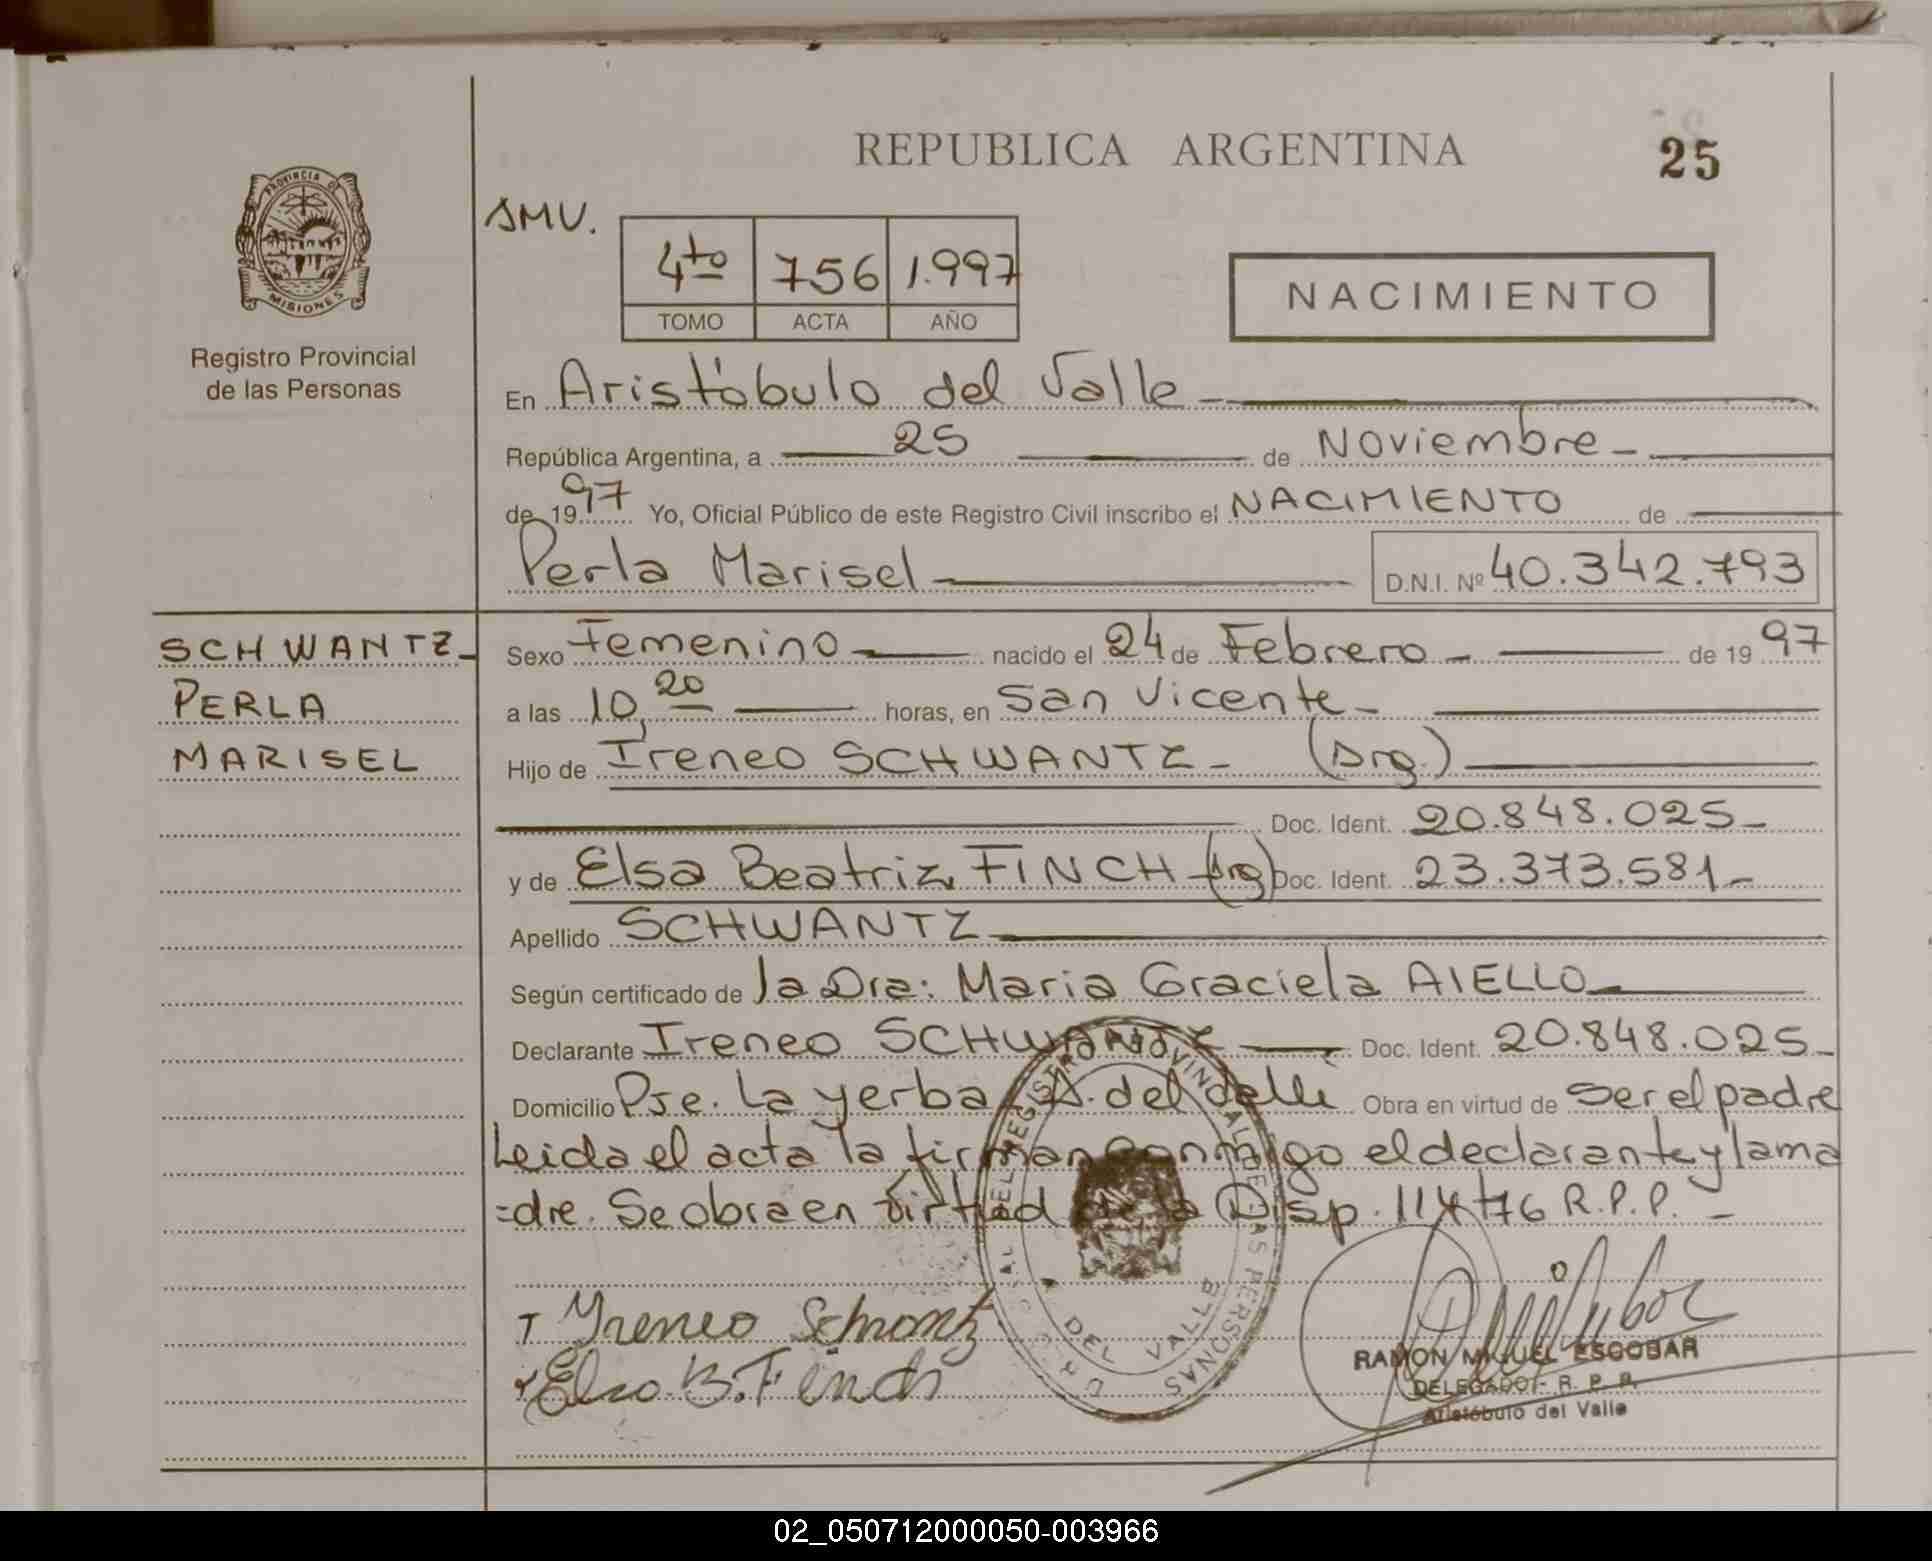 REPUBLICA ARGENTINA
25
PROVINCIA DE
MISIONES
Registro Provincial
de las Personas
SMV.
4to 756 1.997
TOMO ACTA AÑO
NACIMIENTO
En Aristóbulo del Valle
República Argentina, a 25 de Noviembre
de 1997 Yo, Oficial Público de este Registro Civil inscribo el NACIMIENTO de
Perla Marisel D.N.I. Nº 40.342.793
SCHWANTZ
PERLA
MARISEL
Sexo Femenino nacido el 24 de Febrero de 1997
a las 10,20 horas, en San Vicente
Hijo de Ireneo SCHWANTZ (Arg.)
Doc. Ident. 20.848.025
y de Elsa Beatriz FINCH (Arg) Doc. Ident. 23.373.581
Apellido SCHWANTZ
Según certificado de la Dra: Maria Graciela AIELLO
Declarante Ireneo SCHWANTZ Doc. Ident. 20.848.025
Domicilio Pje. La yerba A. del Valle Obra en virtud de ser el padre
Leida el acta la firman conmigo el declarante y la ma
=dre. Se obra en virtud de la Disp. 114/76 R.P.P.
REGISTRO PROVINCIAL DE LAS PERSONAS
DEL VALLE
Yreneo Schwantz
Elsa B. Finch
RAMON MIGUEL ESCOBAR
DELEGADO - R. P. P.
Aristóbulo del Valle
02_050712000050-003966